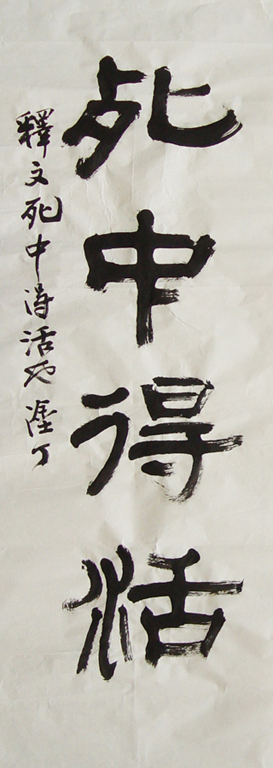 死中得活
釋文死中得活也塗丁